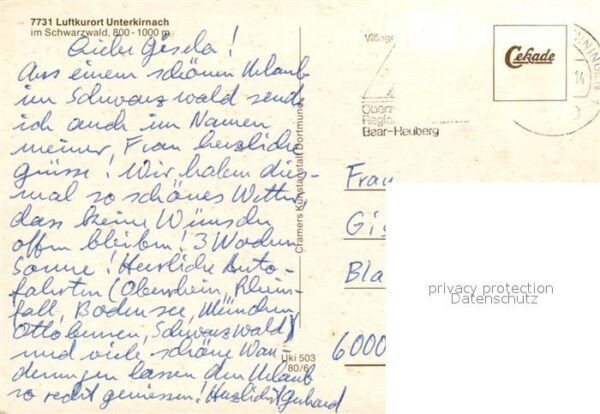 7731 Luftkurort Unterkirnach
im Schwarzwald, 800 - 1000 m
Liebe Gisela!
Aus einem schönen Urlaub
im Schwarzwald send
ich auch im Namen
meiner Frau herzliche
Grüsse! Wir haben dies-
mal so schönes Wetter,
dass keine Wünsche
offen bleiben! 3 Wochen
Sonne! Herrliche Auto-
fahrten (Oberrhein, Rhein-
fall, Bodensee, München,
Ottobeuren, Schwarzwald)
und viele schöne Wan-
derungen lassen den Urlaub
so recht geniessen! Herzlichst Gerhard
Cramers Kunstanstalt Dortmund
Uki 503
80/6
Villinge
Baar-Heuberg
Cekade
NINGEN 1
14
Frau
Gis
Bla
6000
privacy protection
Datenschutz